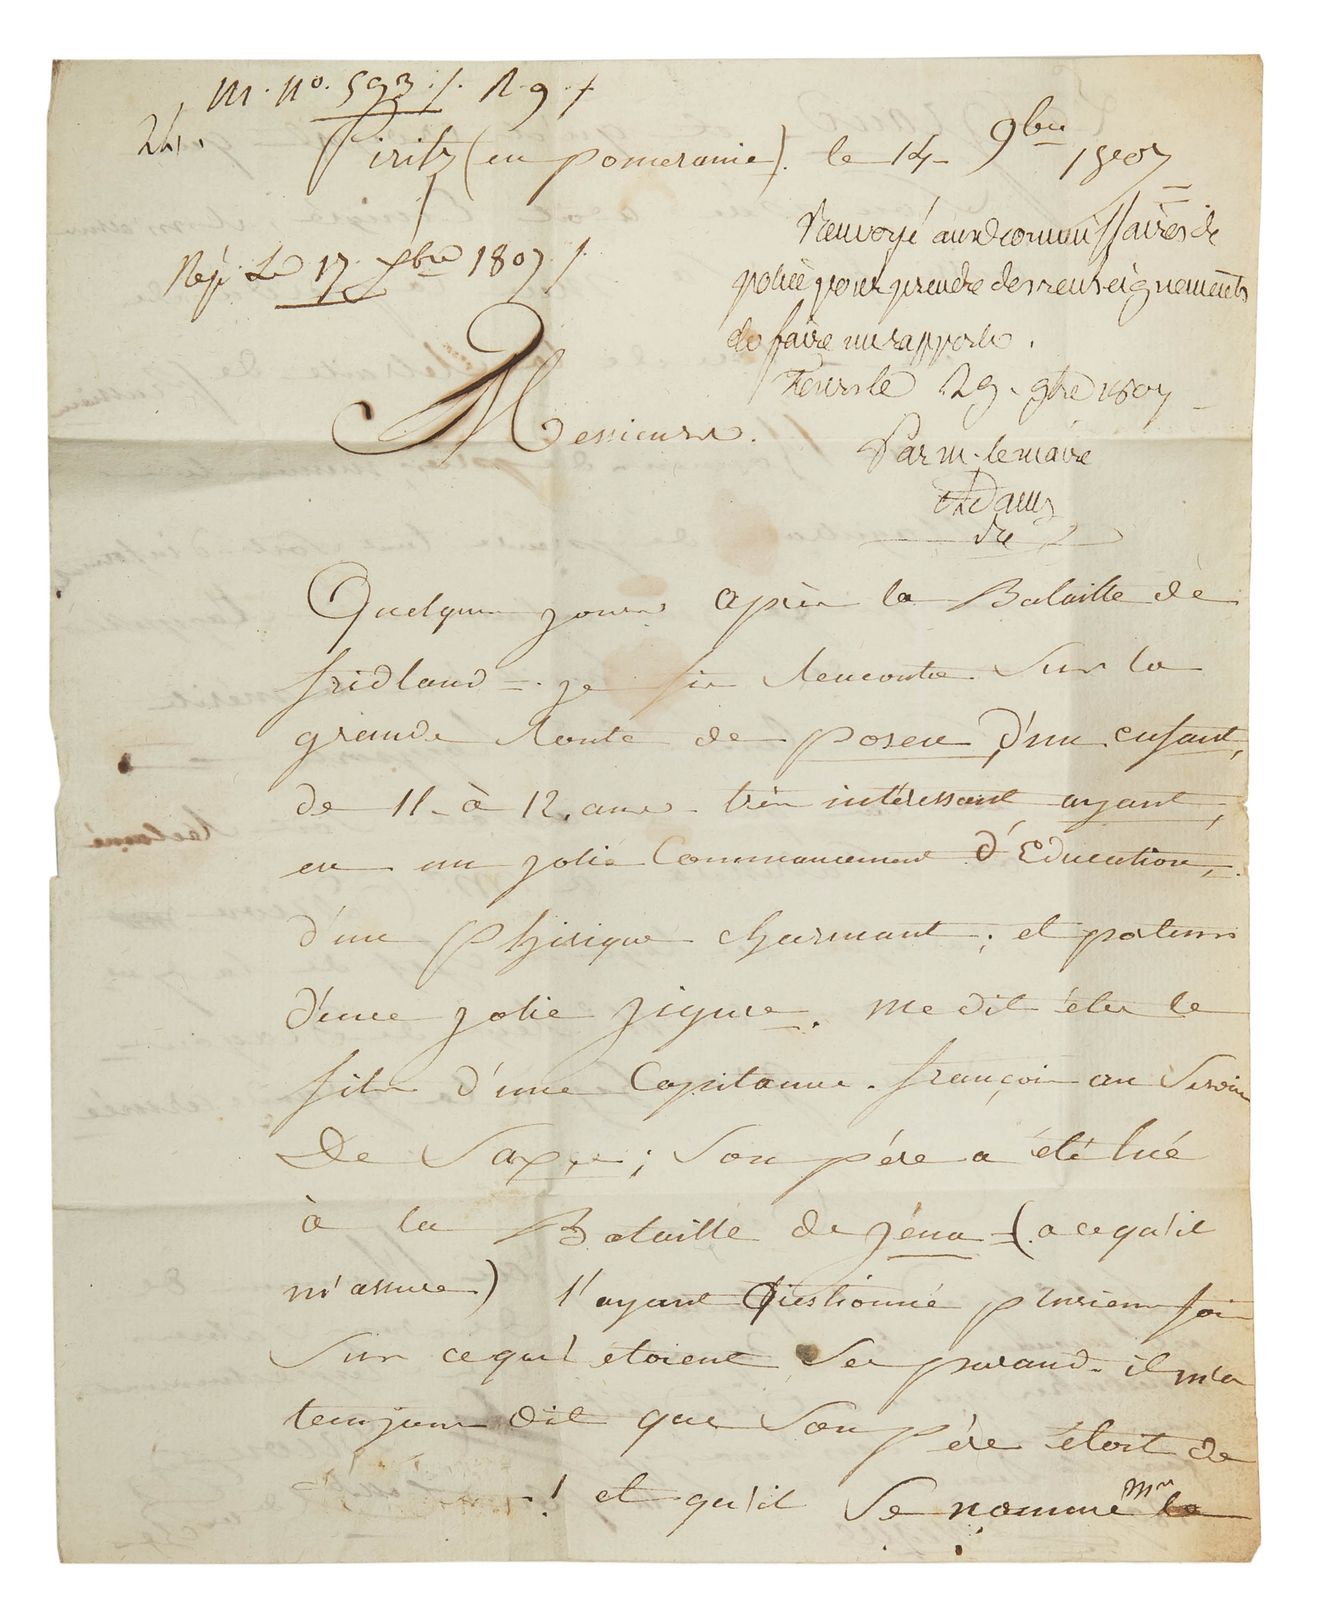 M. N°. 593. /. R. 9. /
24.
Piritz (en pomeranie). le 14 9bre 1807
Renvoyé aux commissaires de
police pour prendre des renseignements
de faire un rapporte.
le 29. 9bre 1807
Par m. le maire
Rép. Le 17. Xbre 1807. /.
Messieurs.
Quelque jours après la Bataille de
fridland =. je fis Rencontre Sur la
grande Route de posen, d'un enfant,
de 11. à 12. ans. très intéressant ayant,
eu un jolie Commancement d'Education,
d'un phisique charmant; et porteur
d'une jolie figure. me dit être le
fils d'une Capitanne. françois au Servic
De Saxe; Son père a été tué
à la Bataille de jéna = (a ce qu'il
m'assure) l'ayant Questionné plusieur fois
Sur ce qu'étoient Ses parand. il m'a
toujour dit que Son père étoit de
! et qu'il Se nomme Mr le
Reclamé